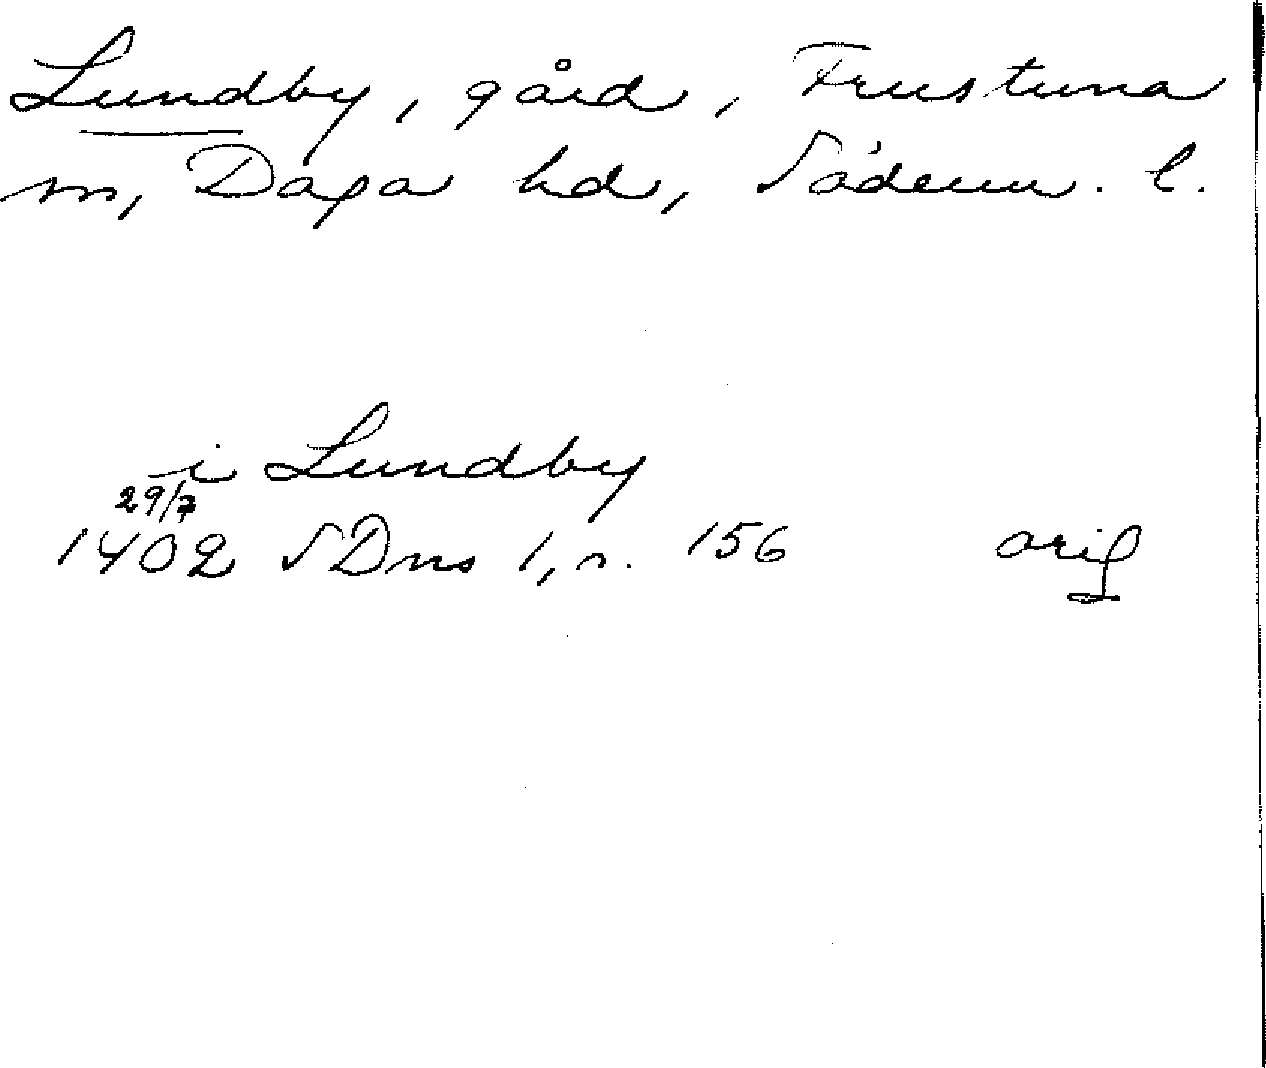 Lundby, gård, Frustuna
sn, Daga hd, Söderm. l.
i Lundby
29/7
1402 SDns 1, s. 156 orig